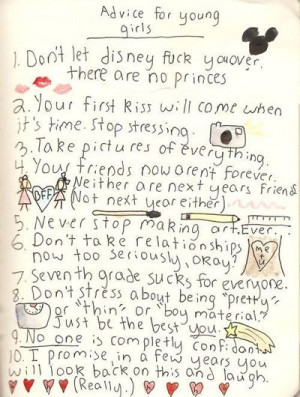 Advice for young
girls
1. Don't let disney fuck you over.
there are no princes
2. Your first kiss will come when
it's time. Stop stressing.
3. Take pictures of everything.
4 Your friends now aren't forever.
Neither are next years friends
(Not next year either)
BFF
5. Never stop making art. Ever.
6. Don't take relationships
now too seriously, okay?
7. Seventh grade sucks for everyone.
8. Don't stress about being "pretty"
or "thin" or "boy material"?
Just be the best you.
9. No one is completly confidant
10. I promise, in a few years you
will look back on this and laugh.
(Really.)